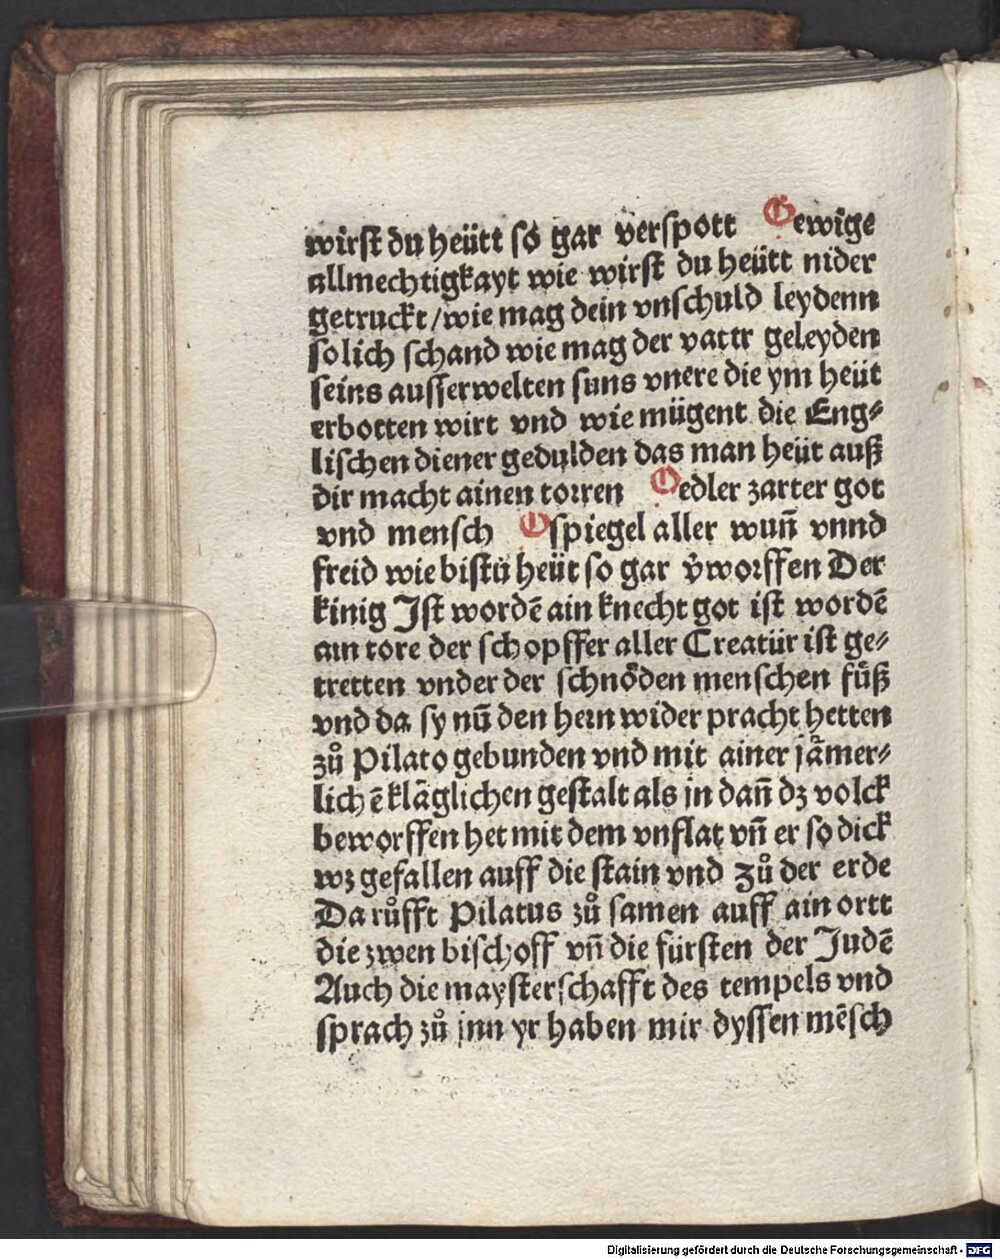 wirst du heütt so gar verspott O ewige
allmechtigkayt wie wirst du heütt nider
getruckt / wie mag dein vnschuld leydenn
solich schand wie mag der vattr geleyden
seins ausserwelten suns vnere die ym heüt
erbotten wirt vnd wie mügent die Eng⸗
lischen diener gedulden das man heüt auß
dir macht ainen torren O edler zarter got
vnd mensch O spiegel aller wun̄ vnnd
freid wie bistu heüt so gar v̓worffen Der
kinig Ist wordē ain knecht got ist wordē
ain tore der schopffer aller Creatür ist ge⸗
tretten vnder der schnöden menschen füß
vnd da sy nū den hern wider pracht hetten
zů Pilato gebunden vnd mit ainer jämer⸗
lichē kläglichen gestalt als jn dan̄ dz volck
beworffen het mit dem vnflat vn̄ er so dick
wz gefallen auff die stain vnd zů der erde
Da růfft Pilatus zů samen auff ain ortt
die zwen bischoff vn̄ die fürsten der Judē
Auch die maysterschafft des tempels vnd
sprach zů jnn yr haben mir dyssen mēsch
Digitalisierung gefördert durch die Deutsche Forschungsgemeinschaft - DFG